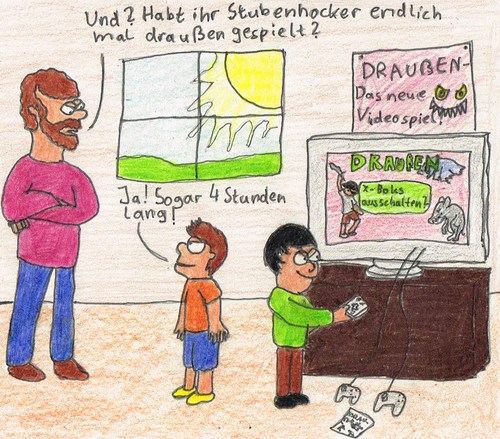 Und? Habt ihr Stubenhocker endlich
mal draußen gespielt?
Ja! Sogar 4 Stunden
lang!
DRAUßEN-
Das neue
Videospiel!
DRAUßEN
X-Boks
ausschalten?